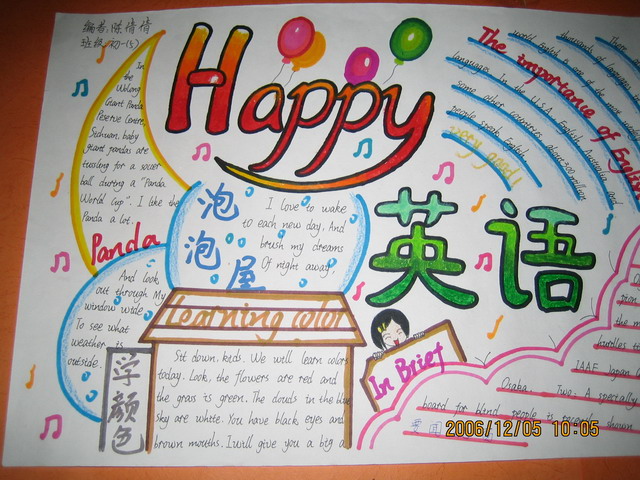 编者:陈倩倩
班级:初一(5)
Happy
英语
In
the
Wolong
Giant Panda
Reserve Centre,
Sichuan, baby
giant pandas are
tussling for a soccer
ball during a "Panda
World Cup". I like the
Panda a lot.
Panda
泡泡屋
I love to wake
to each new day, And
brush my dreams
Of night away,
And look
out through My
window wide
To see what
weather is
outside.
Learning color
学颜色
Sit down, kids. We will learn colors
today. Look, the flowers are red and
the grass is green. The clouds in the blue
sky are white. You have black eyes and
brown mouths. I will give you a big a
The importance of English
world English is one of the most
thousands of
languages. In the U.S.A, English
Australia and
some other countries about
people speak English
Very good!
In Brief
the
hurdles
IAAF Japan
Osaka
Two. A specially
board for blind people is recently shown
2006/12/05 10:05